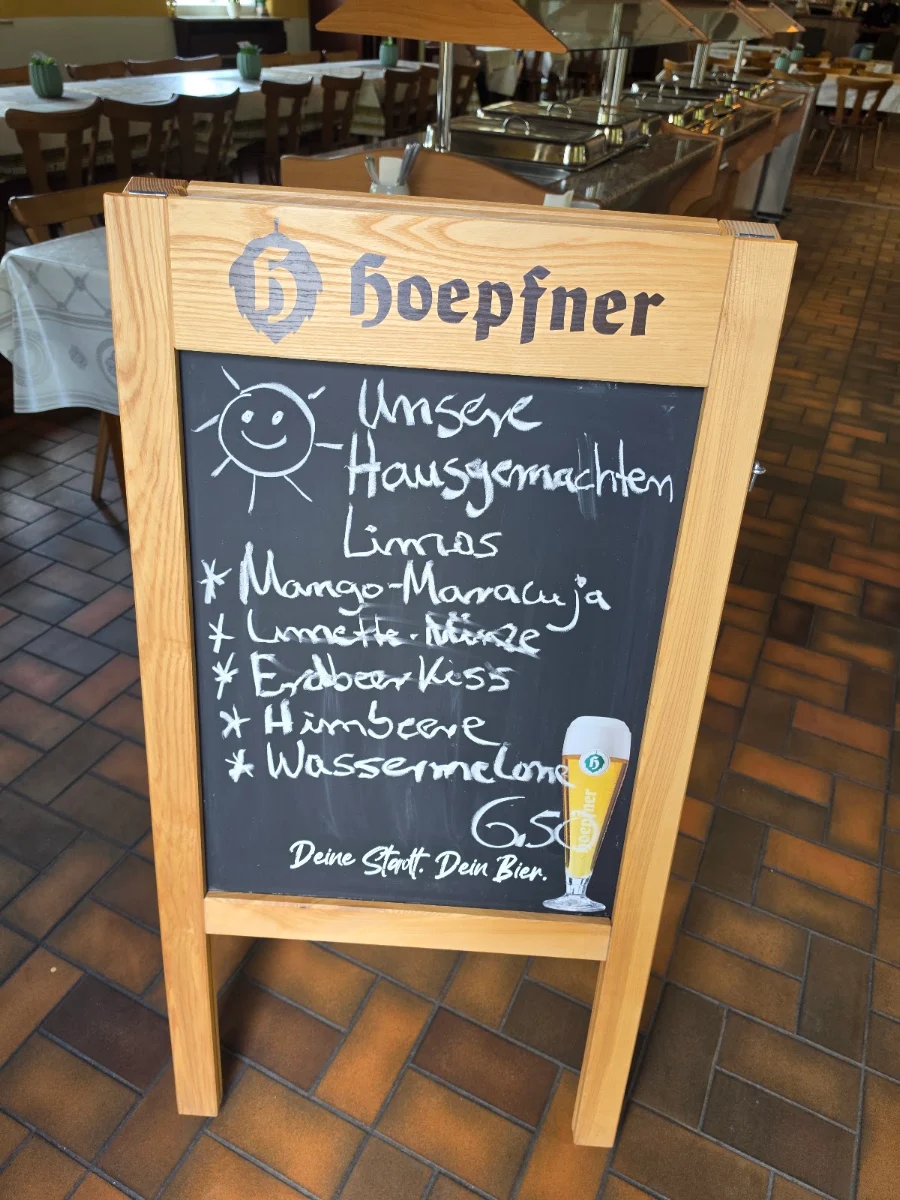 hoepfner
Unsere
Hausgemachten
Limos
* Mango-Maracuja
* Limette-Minze
* Erdbeer Kiss
* Himbeere
* Wassermelone
6.50
hoepfner
Deine Stadt. Dein Bier.